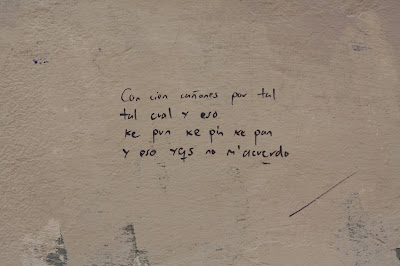 Con cien cañones por tal
tal cual y eso
ke pun ke pin ke pan
y eso yqs no m'acuerdo